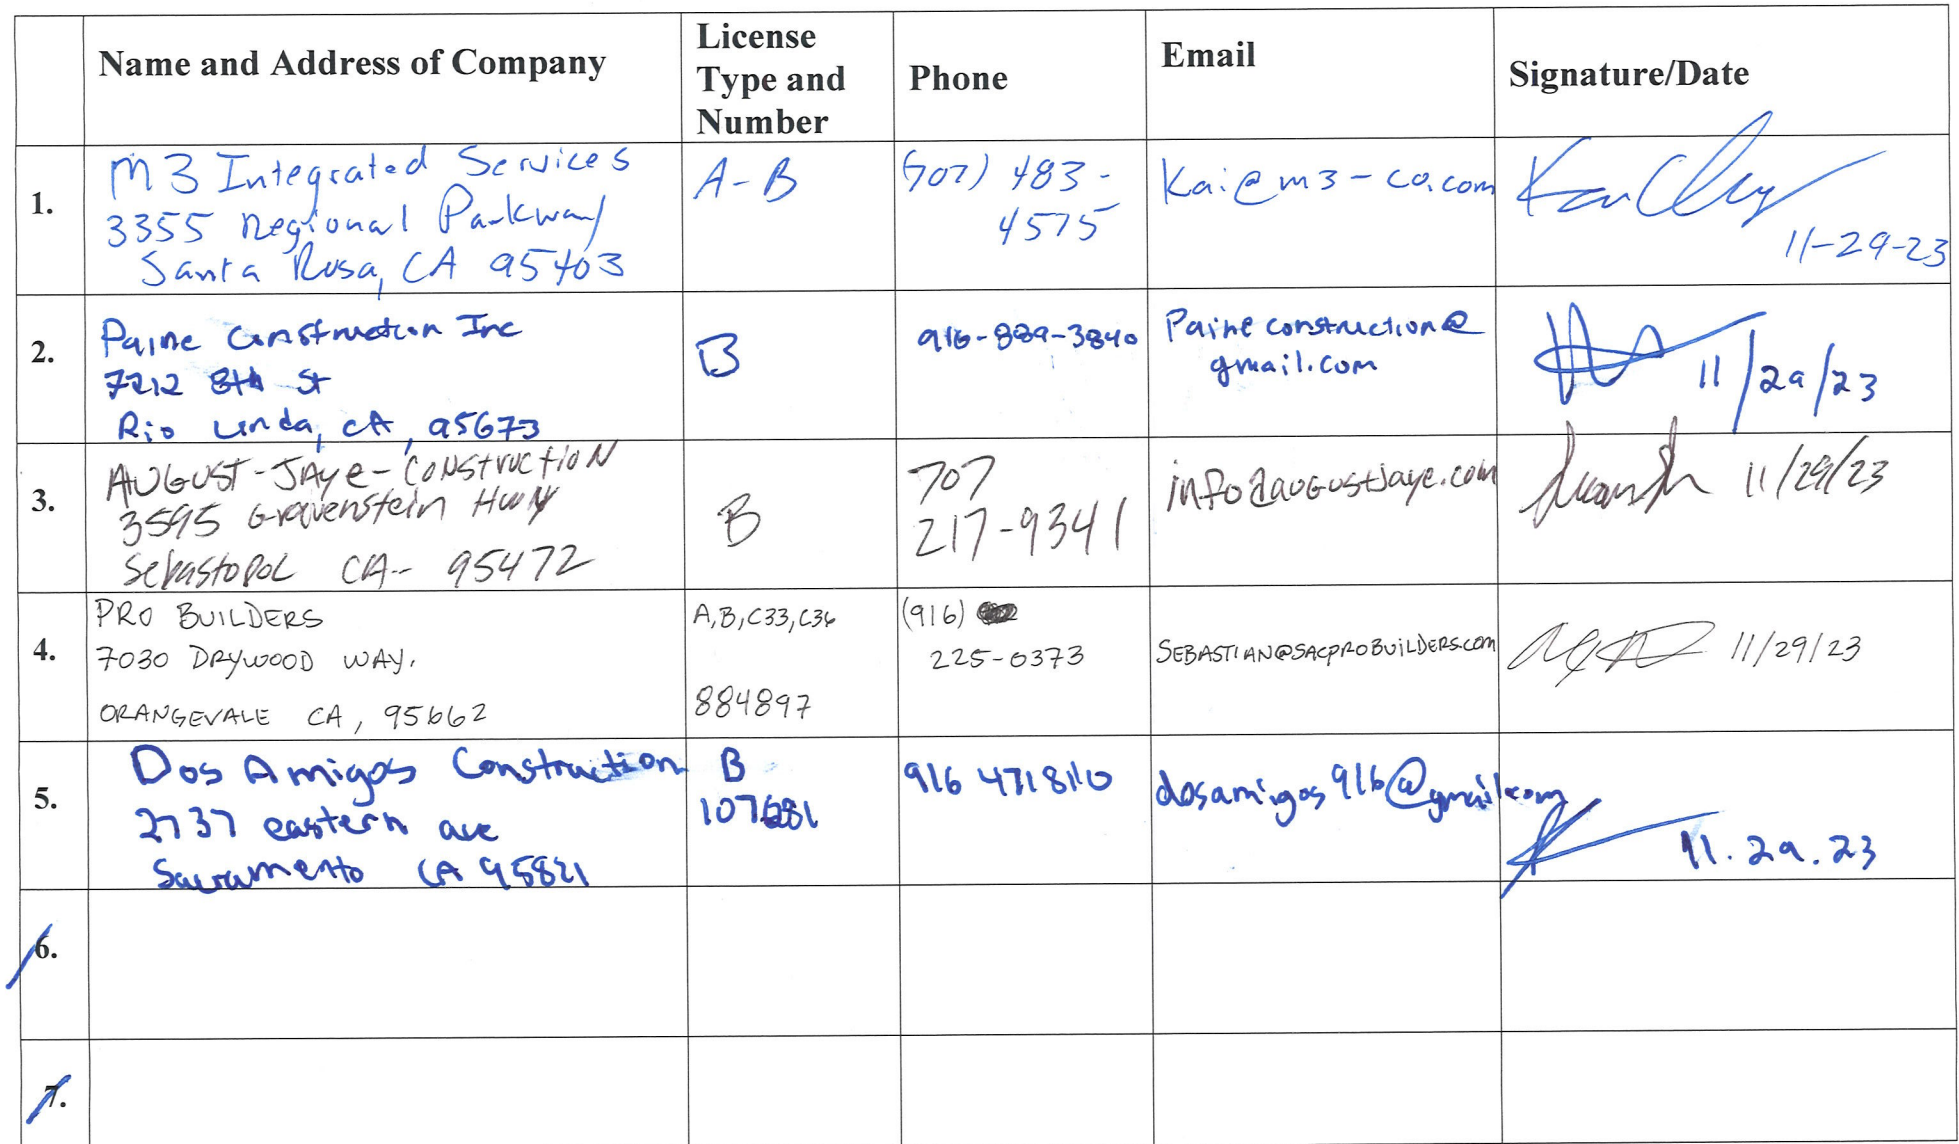 Name and Address of Company
License Type and Number
Phone
Email
Signature/Date
1.
M3 Integrated Services
3355 Regional Parkway
Santa Rosa, CA 95403
A-B
(707) 483-
4575
Kai@m3-co.com
11-29-23
2.
Paine Construction Inc
7212 8th St
Rio Linda, CA, 95673
B
916-889-3840
Paineconstruction@
gmail.com
11/29/23
3.
AUGUST-JAYe-CONSTRUCTION
3595 Gravenstein HWY
Sebastopol CA- 95472
B
707
217-9341
info@augustjaye.com
11/29/23
4.
PRO BUILDERS
7030 DRYWOOD WAY.
ORANGEVALE CA, 95662
A,B,C33,C36
884897
(916)
225-0373
SEBASTIAN@SACPROBUILDERS.COM
11/29/23
5.
Dos Amigos Construction
2737 eastern ave
Sacramento CA 95821
B
916 4718110
dosamigos916@gmail.com
11.29.23
6.
7.